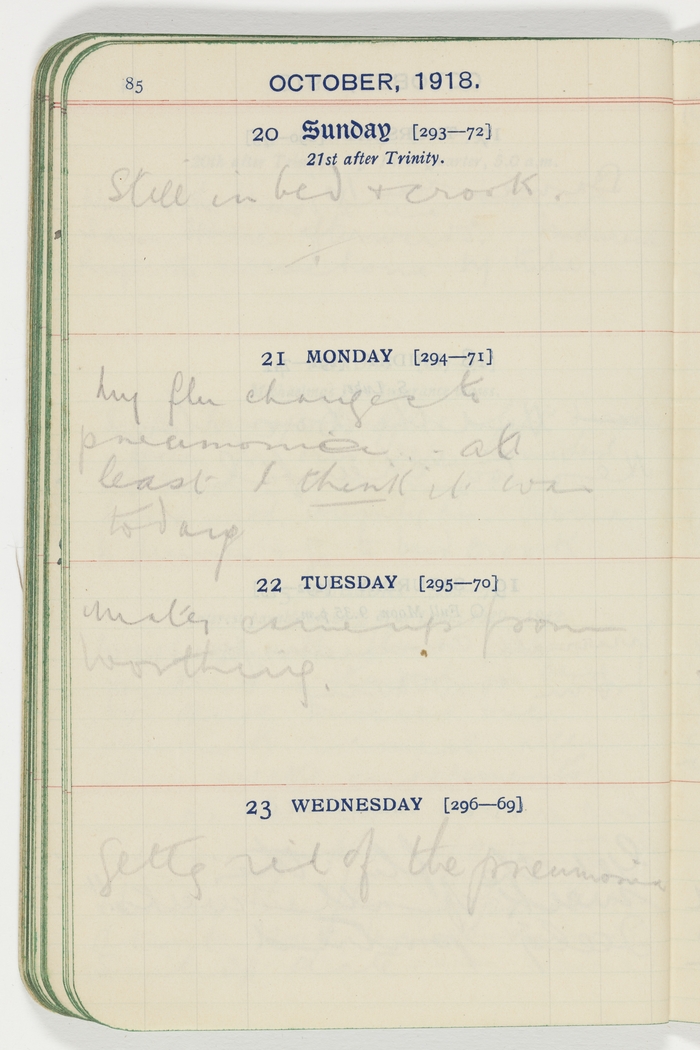 85 OCTOBER, 1918.
20 Sunday [293—72]
21st after Trinity.
Still in bed & crook.
21 MONDAY [294—71]
My flu changes to
pneumonia .. at
least I think it was
today
22 TUESDAY [295—70]
Mater came up from
Worthing.
23 WEDNESDAY [296—69]
Gettg rid of the pneumonia